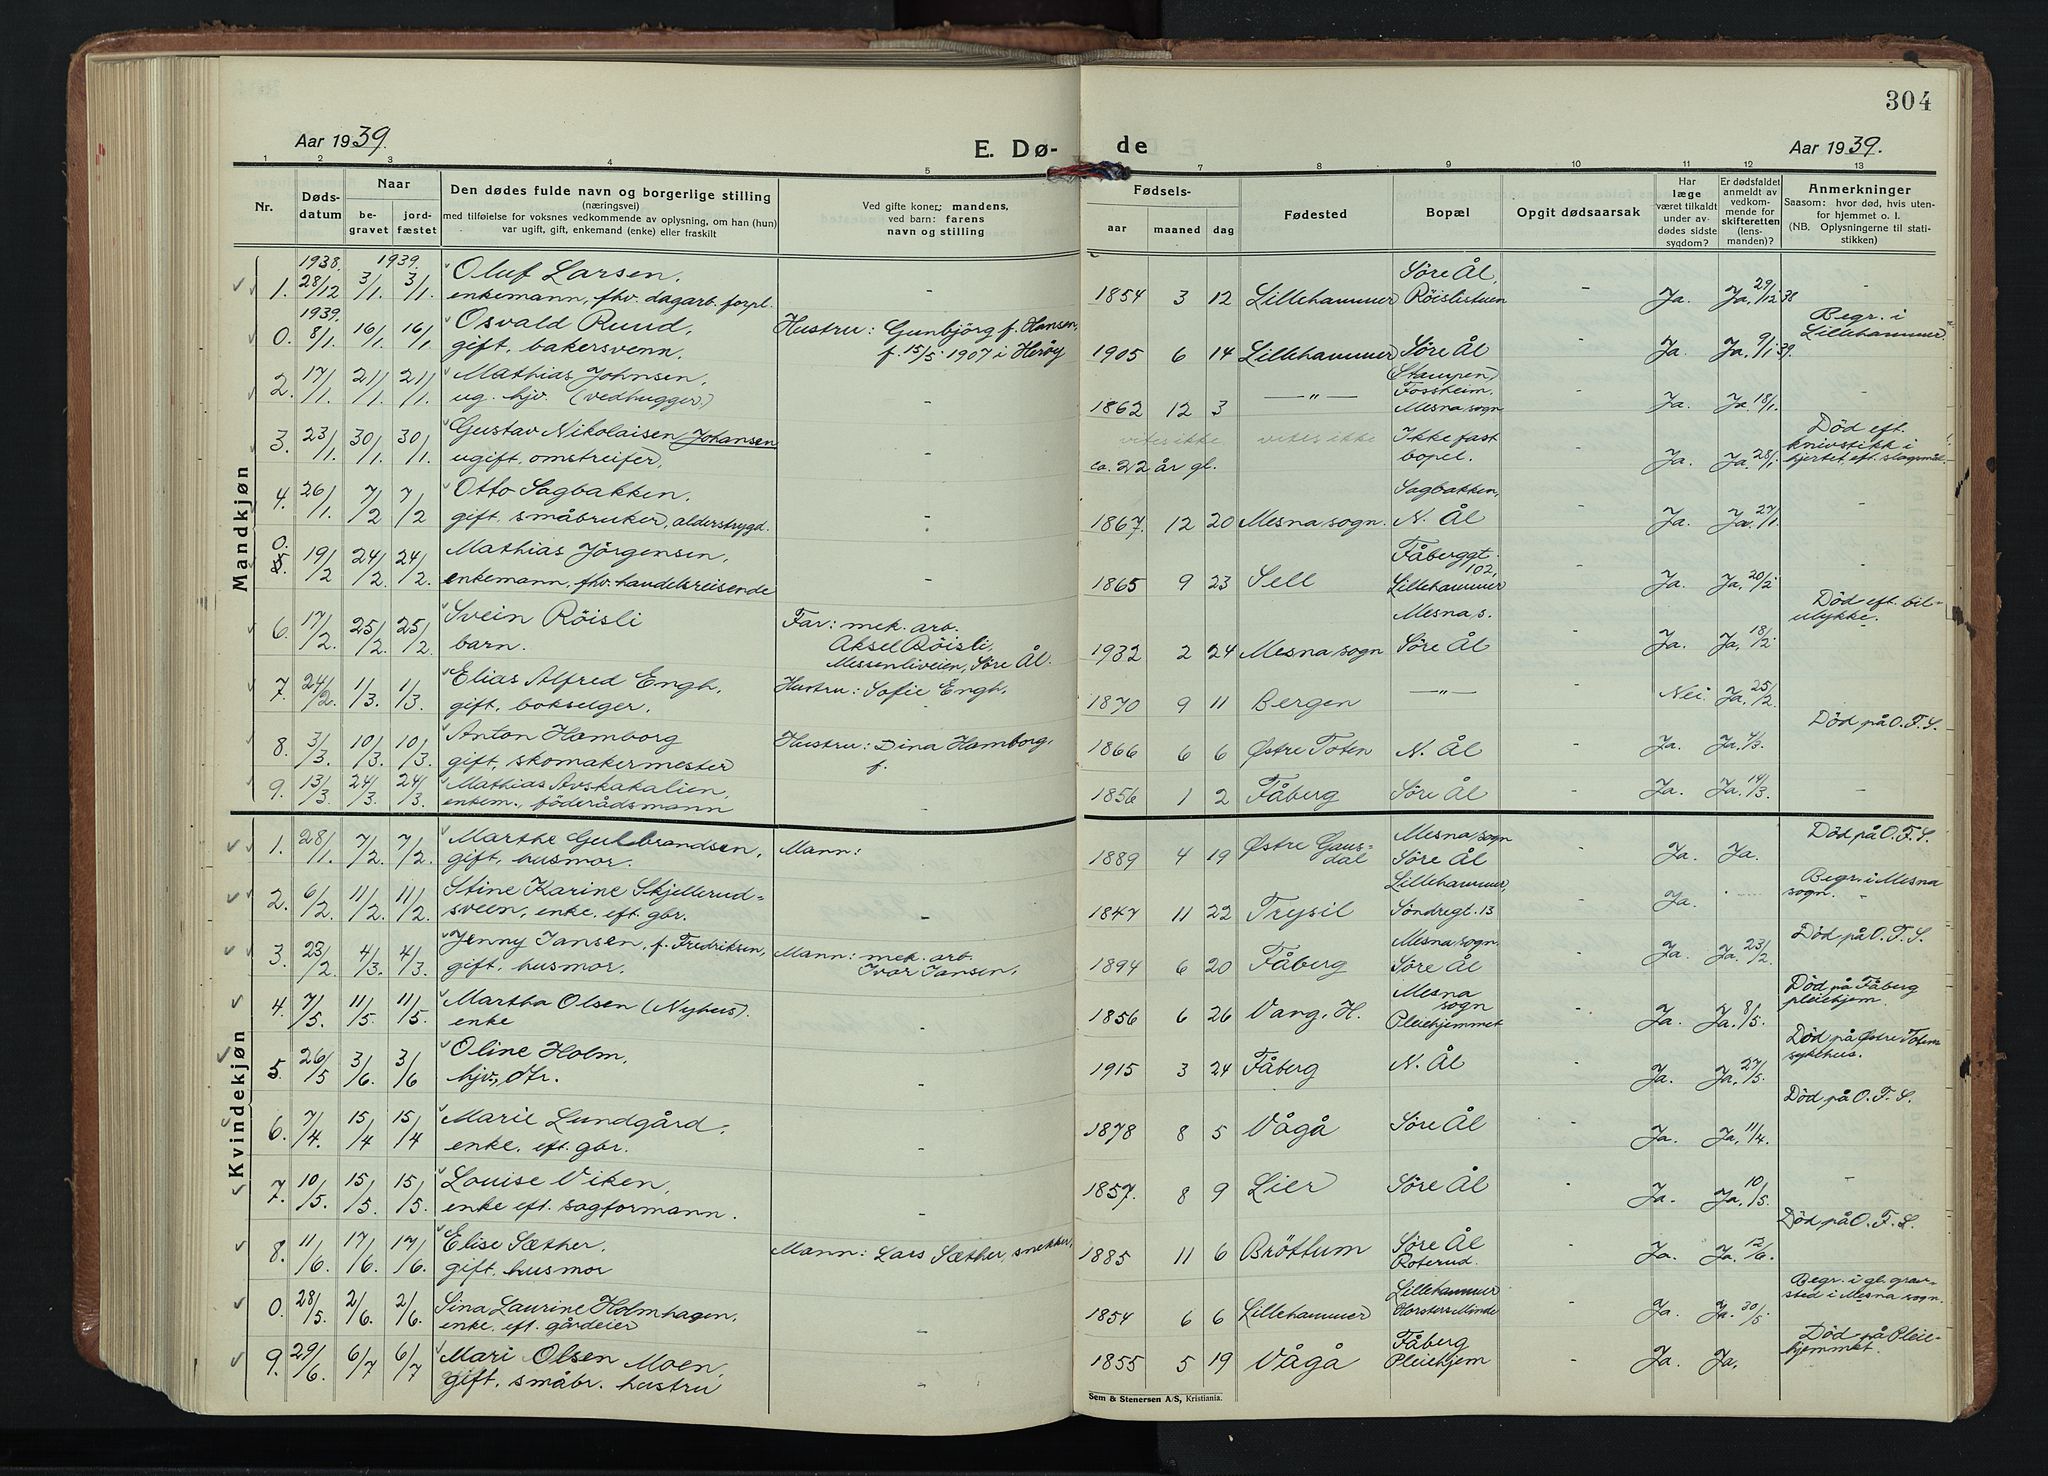 304
Aar 1939.
E. Dø-
de
Aar 1939.
1 2 3 4 5 7 8 9 10 11 12 13
Nr.
Døds-
datum
Naar
be-
gravet
jord-
fæstet
Den dødes fulde navn og borgerlige stilling
(næringsvei)
med tilføielse for voksnes vedkommende av oplysning, om han (hun)
var ugift, gift, enkemand (enke) eller fraskilt
Ved gifte koner: mandens,
ved barn: farens
navn og stilling
Fødsels-
aar maaned dag
Fødested
Bopæl
Opgit dødsaarsak
Har
læge
været tilkaldt
under av-
dødes sidste
sygdom?
Er dødsfaldet
anmeldt av
vedkom-
mende for
skifteretten
(lens-
manden)?
Anmerkninger
Saasom: hvor død, hvis uten-
for hjemmet o. l.
(NB. Oplysningerne til stati-
stikken)
Mandkjøn
1938. 1939.
1. 28/12 3/1. 3/1. Oluf Larsen,
enkemann, fhv. dagarb. forpl. -
1854 3 12 Lillehammer Søre Ål,
Røislistuen - Ja. Ja, 29/12 38 -
1939.
0. 8/1. 16/1. 16/1. Osvald Ruud,
gift, bakersvenn.
Hustru: Gunbjörg f. Hansen,
f. 15/5 1907 i Herøy
1905 6 14 Lillehammer Søre Ål
(Stampen) - Ja. Ja, 9/1 39. Begr. i
Lillehammer.
2. 17/1. 21/1. 21/1. Mathias Johnsen,
ug. hjv. (vedhugger.) -
1862 12 3 -"- Fossheim.
Mesna sogn - Ja. Ja 18/1.
3. 23/1. 30/1. 30/1. Gustav Nikolaisen Johansen
ugift, omstreifer, -
vites ikke vites ikke
ca. 22 år gl.
Ikke fast
bopel. - Ja. Ja, 28/1 Død eft.
knivstikk i
hjertet, eft. slagsmål.
4. 26/1. 7/2 7/2 Otto Sagbakken.
gift, småbruker, alderstrygd. -
1867. 12 20 Mesna sogn. Sagbakken,
N. Ål - Ja. Ja. 27/1.
0.
5. 19/2 24/2. 24/2. Mathias Jörgensen,
enkemann, fhv. handelsreisende -
1865 9 23 Sell Fåberggt.
102,
Lillehammer - Ja. Ja, 20/2.
6. 17/2. 25/2 25/2 Svein Röisli
barn.
Far: mek. arb.
Aksel Röisli,
Messenliveien, Söre Ål.
1932 2 24 Mesna sogn Mesna s.
Söre Ål - Ja. Ja, 18/2 Död eft. bil-
ulykke.
7. 24/2. 1/3. 1/3. Elias Alfred Engh,
gift, bokselger.
Hustru: Sofie Engh,
1870 9 11 Bergen -"- - Nei. Ja, 25/2.
8. 3/3. 10/3. 10/3. Anton Hamborg
gift, skomakermester
Hustru: Dina Hamborg,
f.
1866 6 6 Østre Toten N. Ål - Ja. Ja, 4/3. Död på O. F. S.
9. 13/3. 24/3. 24/3. Mathias Avskakalien,
enkem., föderådsmann -
1856 1 2 Fåberg Söre Ål - Ja. Ja, 14/3. -
Kvindekjøn
1. 28/1. 7/2. 7/2. Marthe Gulbrandsen,
gift, husmor.
Mann:
1889 4 19 Östre Gaus-
dal Mesna sogn
Söre Ål - Ja. Ja. Död på O. F. S.
2. 6/2. 11/2 11/2 Stine Karine Skjellerud-
sveen, enke, eft. gbr. -
1847 11 22 Trysil Lillehammer,
Söndregt. 13 - Ja. - Begr. i Mesna
sogn.
3. 23/2 4/3. 4/3. Jenny Jansen, f. Fredriksen,
gift, husmor.
Mann: mek. arb.
Ivar Jansen,
1894 6 20 Fåberg Mesna sogn.
Söre Ål - Ja. Ja, 23/2. Död på O. F. S.
4. 7/5. 11/5 11/5. Martha Olsen (Nyhus).
enke -
1856 6 26 Vang, H. Mesna
sogn
Pleiehjemmet - Ja. Ja. 8/5. Död på Fåberg
pleiehjem.
5. 26/5 3/6. 3/6 Oline Holm,
hjv., dtr. -
1915 3 24 Fåberg N. Ål - Ja. Ja, 27/5. Död på Østre Toten
sykehus.
6. 7/4. 15/4 15/4 Marie Lundgård,
enke, eft. gbr. -
1878 8 5 Vågå Söre Ål - Ja. Ja, 11/4. Död på O. F. S.
7. 10/5. 15/5. 15/5. Louise Viken,
enke eft. sagformann. -
1857. 8 9 Lier Söre Ål - Ja. Ja, 10/5. -
8. 11/6. 17/6. 17/6. Elise Sæther,
gift, husmor
Mann: Lars Sæther, snekker,
1885 11 6 Bröttum Söre Ål
Roterud. - Ja. Ja. 12/6. Död på O. F. S.
0. 28/5. 2/6. 2/6. Sina Laurine Holmhagen,
enke, eft. gårdeier -
1854 6 6 Lillehammer Lillehammer
Minde - Ja. Ja. 30/5 Begr. i gl. grav-
sted i Mesna sogn.
9. 29/6. 6/7 6/7 Mari Olsen Moen,
gift, småbr. hustru -
1855 5 19 Vågå Fåberg
Pleiehjem - Ja. Ja, Död på Pleie-
hjemmet.
Sem & Stenersen A/S, Kristiania.